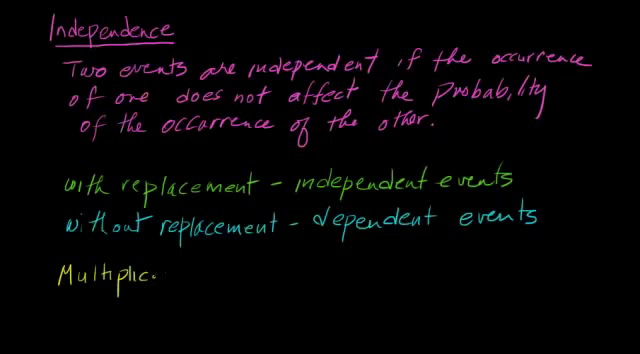 Independence
Two events are independent if the occurrence
of one does not affect the Probability
of the occurrence of the other.
with replacement - independent events
without replacement - dependent events
Multiplic